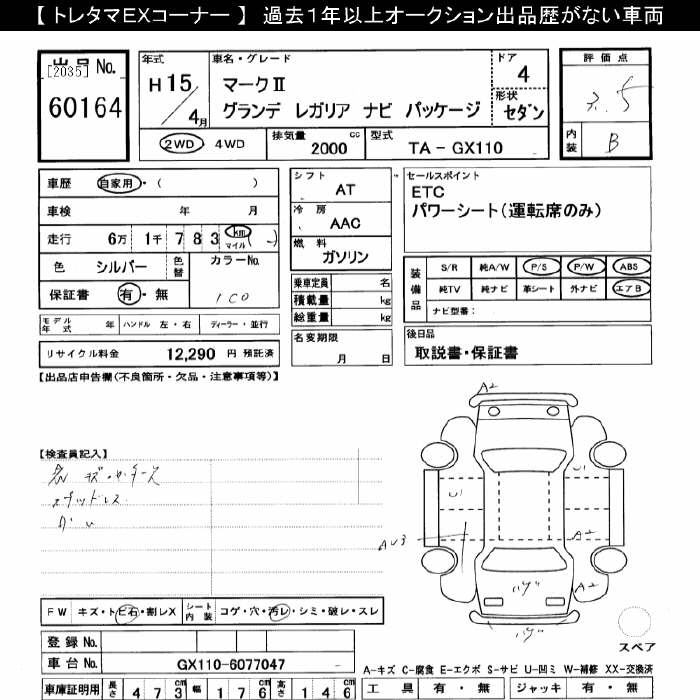 【 トレタマEXコーナー 】 過去1年以上オークション出品歴がない車両
出品 No.
[2035]
60164
年式
H 15/4月
車名・グレード
マークⅡ
グランデ レガリア ナビ パッケージ
ドア
4
形状
セダン
評価点
3.5
内装
B
2WD ・ 4WD
排気量 cc
2000
型式
TA - GX110
車歴 自家用・( )
車検 年 月
走行 6万 1千 7 8 3 km マイル (-)
色 シルバー 色替 カラーNo.
1C0
保証書 有・無
モデル年式 年 ハンドル 左・右 ディーラー・並行
リサイクル料金 12,290 円 預託済
シフト
AT
冷房
AAC
燃料
ガソリン
乗車定員 名
積載量 kg
総重量 kg
名変期限
月 日
セールスポイント
ETC
パワーシート(運転席のみ)
装備品
S/R 純A/W P/S P/W ABS
純TV 純ナビ 革シート 外ナビ エアB
ナビ型番:
後日品
取説書・保証書
【出品店申告欄(不良箇所・欠品・注意事項等)】
【検査員記入】
A2
U1
U1
AU3
A2
A2
スペア
FW キズ・トビ石・割レX シート内装 コゲ・穴・汚レ・シミ・破レ・スレ
登録 No.
車台 No. GX110-6077047
車庫証明用 長さ 4 7 3 cm 幅 1 7 6 cm 高さ 1 4 6 cm
A-キズ C-腐食 E-エクボ S-サビ U-凹ミ W-補修 XX-交換済
工具 有・無 ジャッキ 有・無